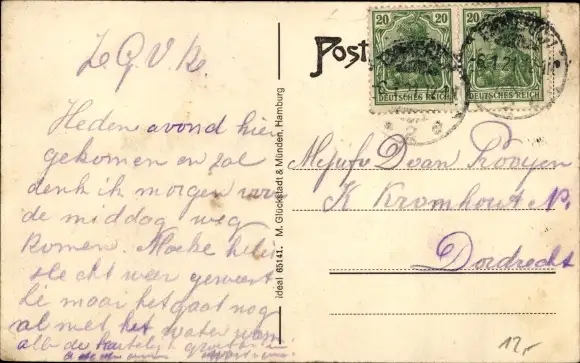 Z.G.V.K.
Heden avond hier
gekomen en zal
denk ik morgen voor
de middag weg
komen.
slecht weer geweest
maar het gaat nog
al met het water
alb. de hartelijke groeten
Post
20 20
DEUTSCHES REICH DEUTSCHES REICH
6.1.21
Mejufr D van Rooyen
K Kromhout N.
Dordrecht
ideal 65141. M. Glückstadt & Münden, Hamburg
12,-